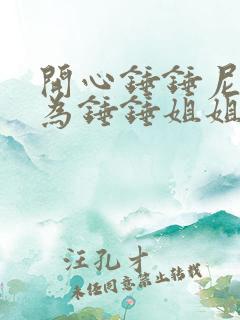 開心錘錘尼
為錘錘姐姐
汪孔才
未經同意禁止轉載